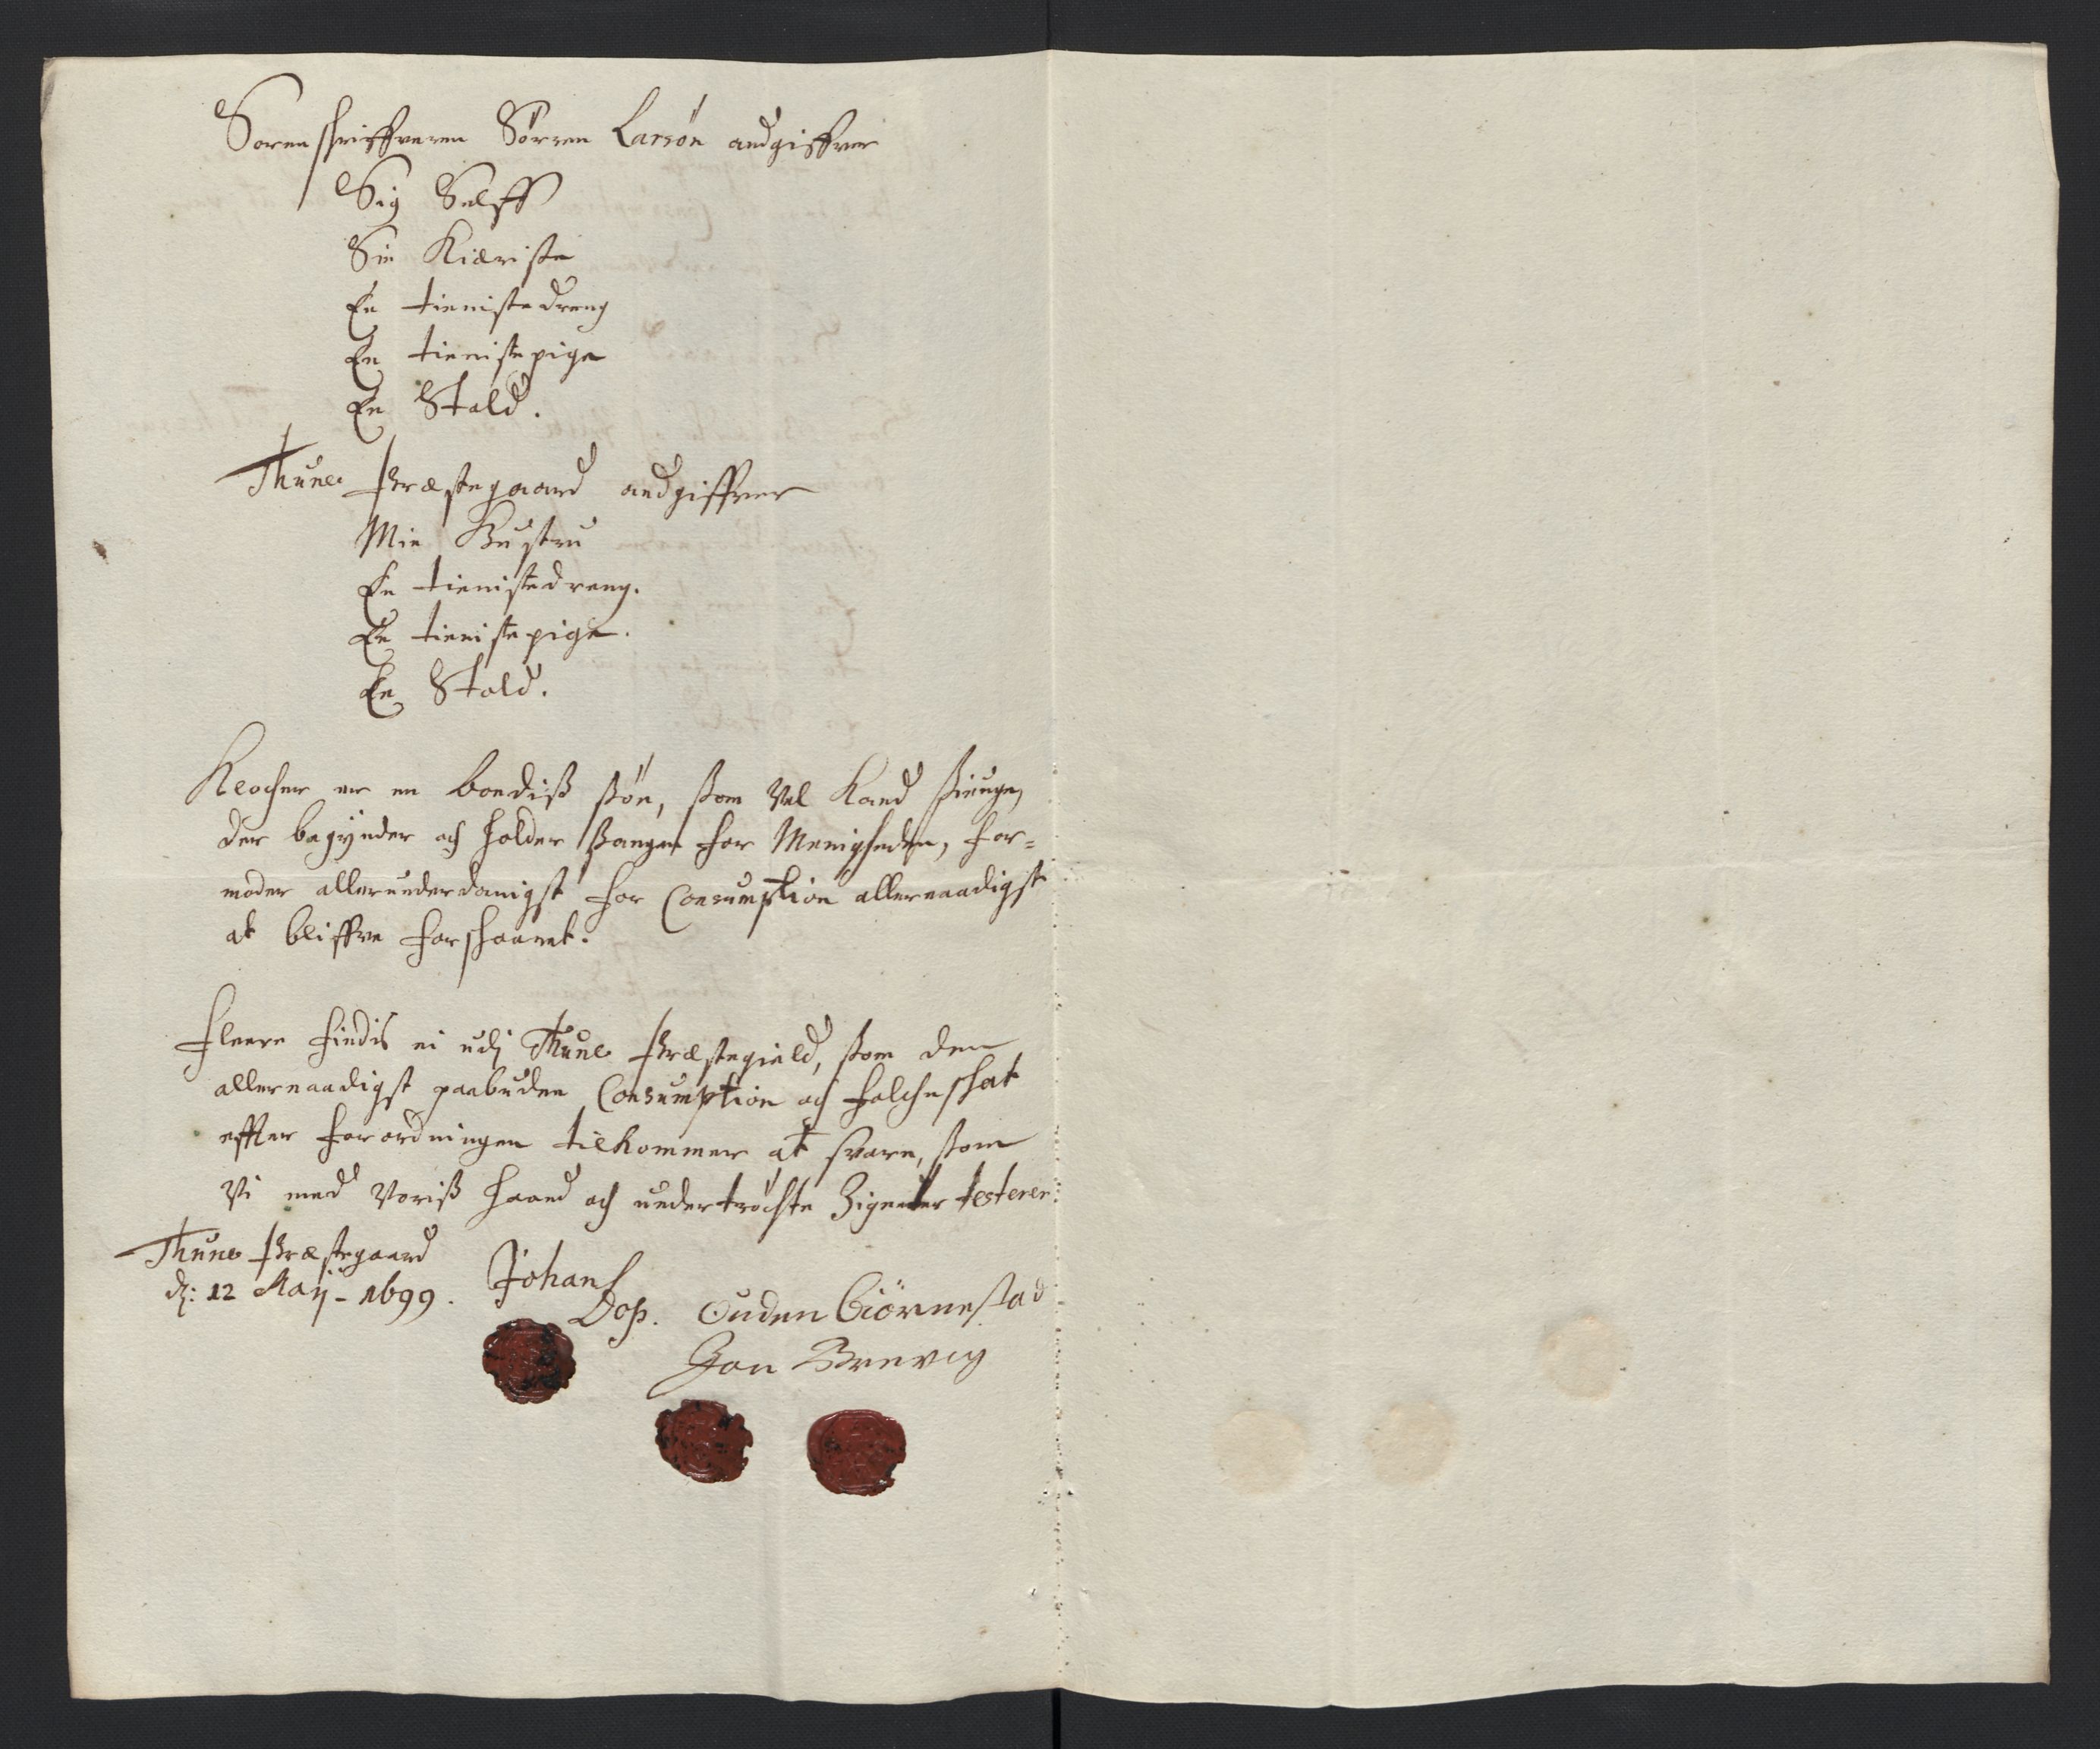 Sorenschriffveren Sörren Larsön andgiffver
Sig Selff
Sin Kiæriste
En tienistedreng
En tienistepige
En Stald.
Thune Præstegaard andgiffver
Min Hustru
En tienistedreng.
En tienistepige.
En Stald.
Klocher er en bondiß ssön, ssom Vel Kand ssiunge,
der begynder och holder ssangen for Menigheden, for=
moder allerunderdanigst for Consumption allernaadigst
at bliffve forschaanet.
Fleere findis ei udj Thune Præstegield, ssom den
allernaadigst paabudne Consumption och folcheschat
effter forordningen tilkommer at svare, ssom
Vi med Voriß haand och undertröchte Zigneter testerer:
Thune Præstegaard
dj: 12 Maij - 1699.
Johan
Dop. Ouden Giörnestad
Jon Brevig